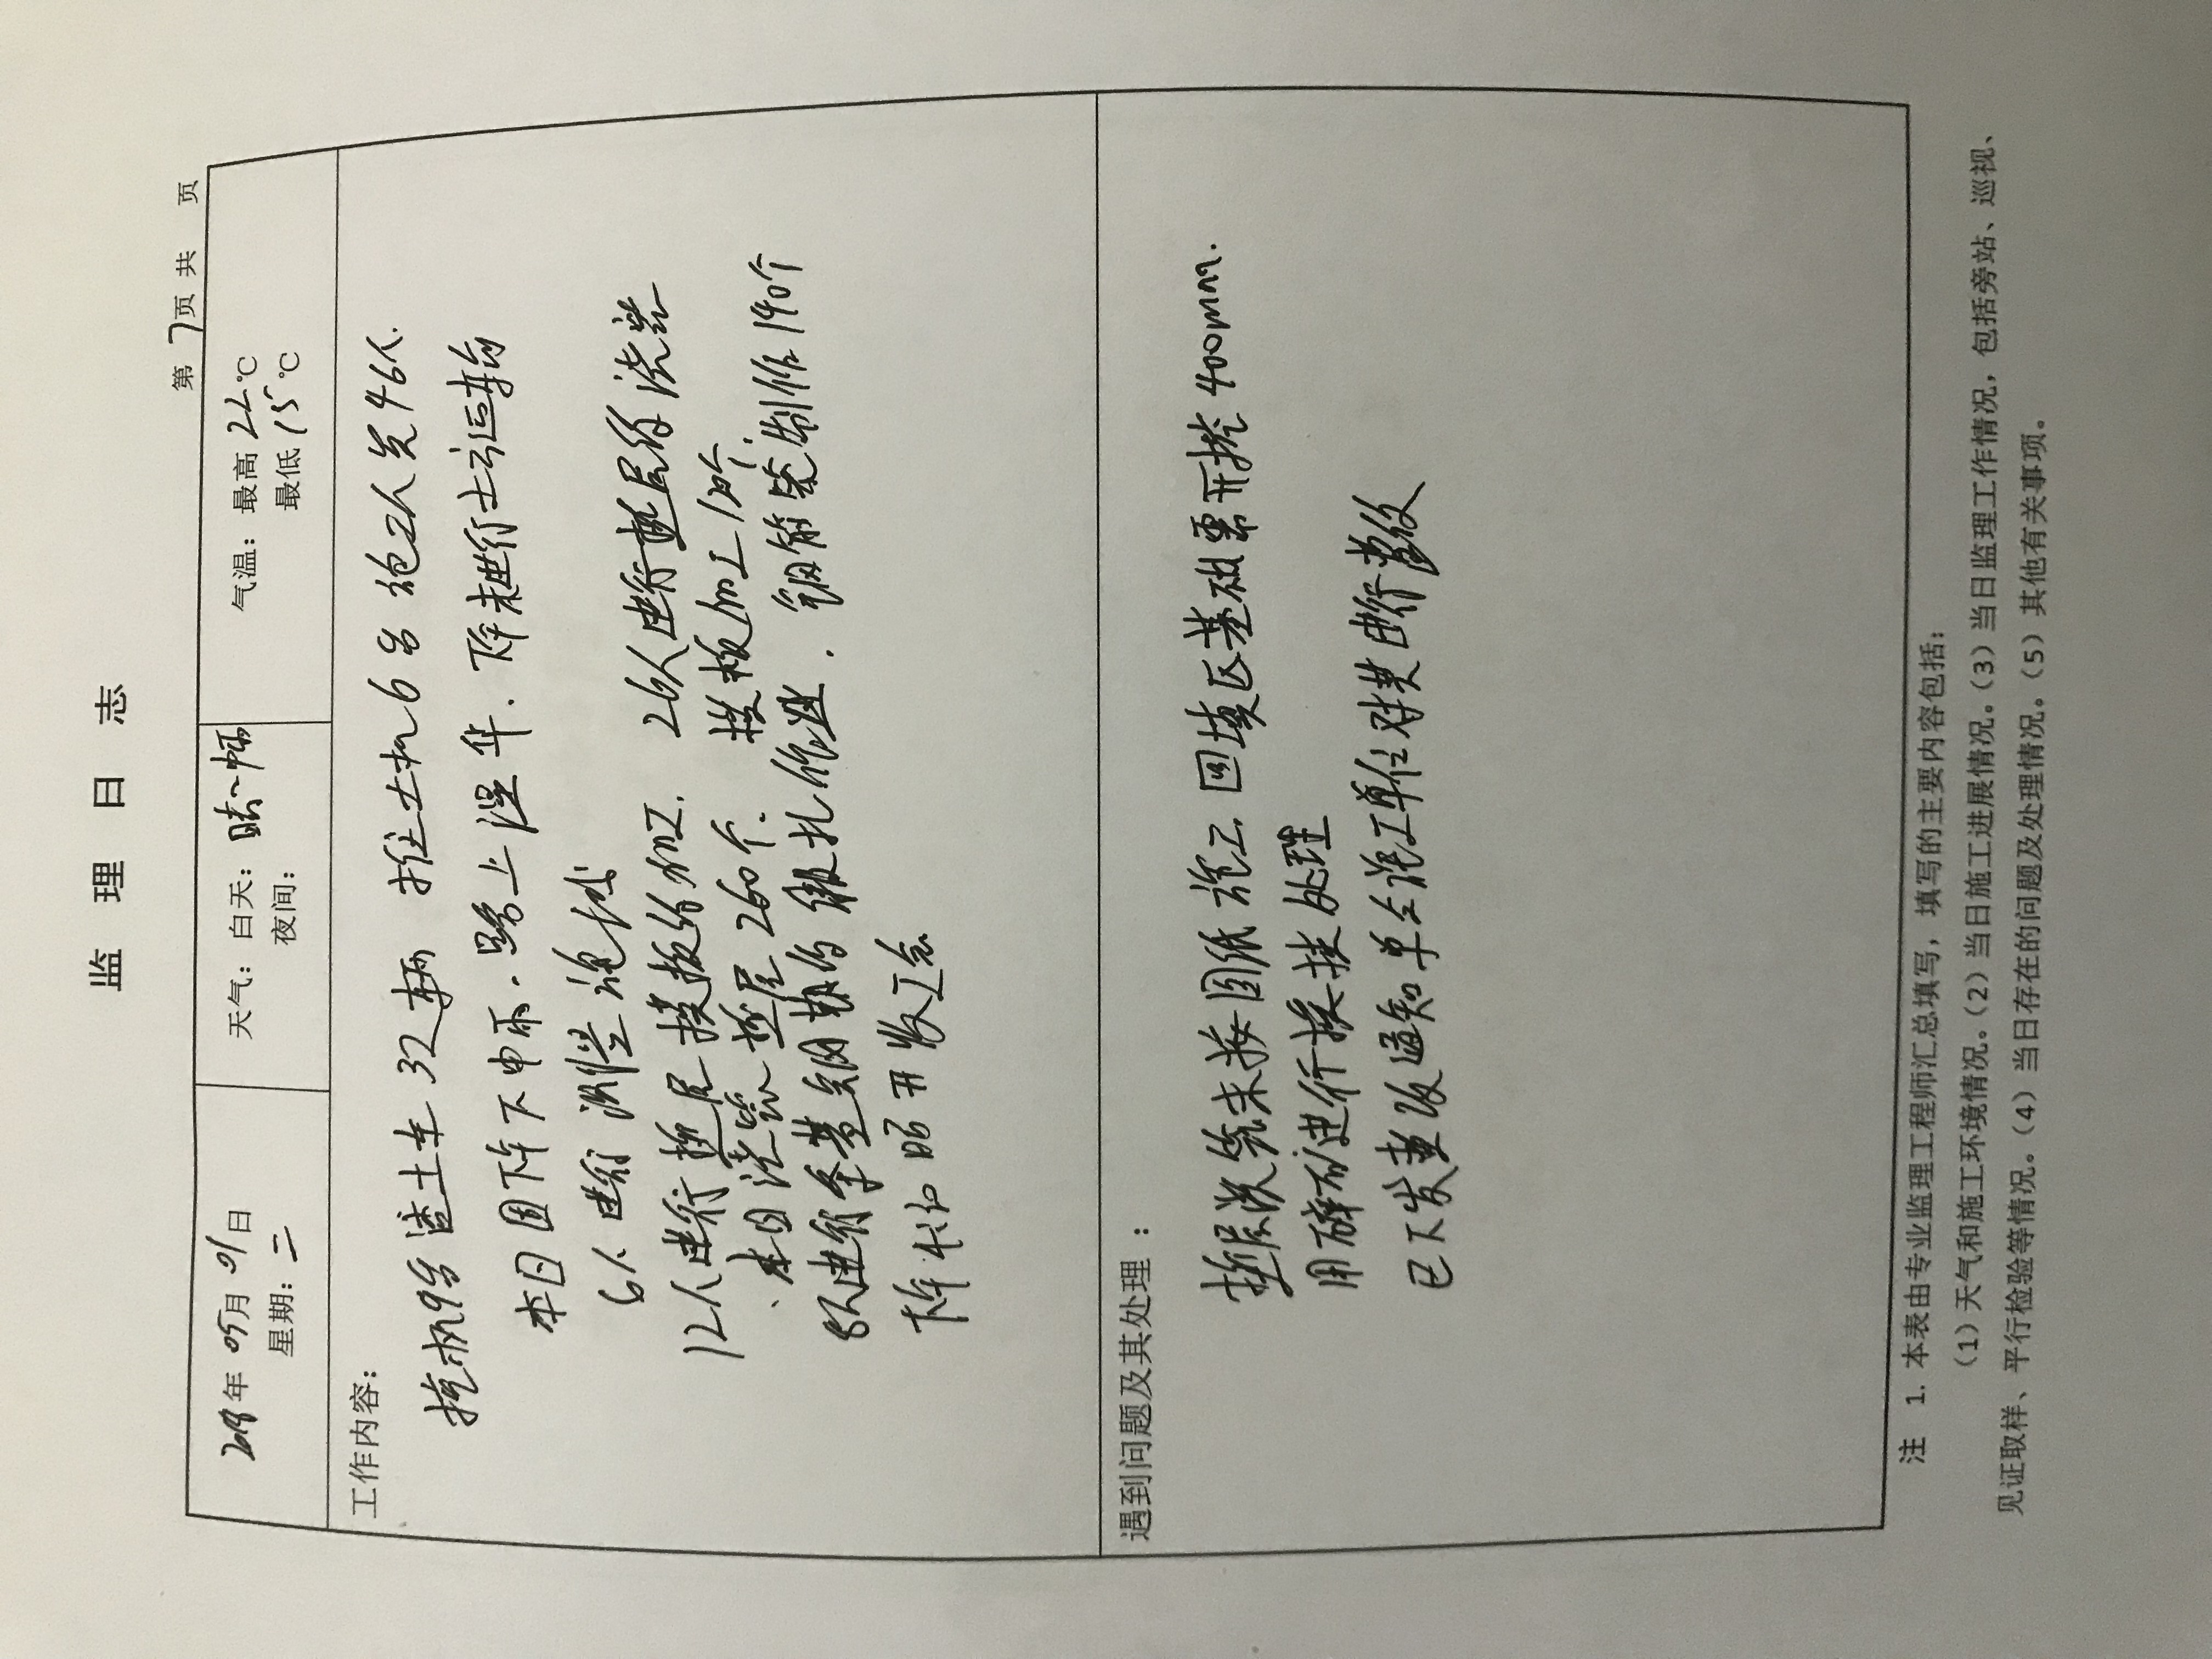 监 理 日 志
第 7 页 共 页
2018年 05月 01日
星期：二
天气：白天：晴~中雨
夜间：
气温：最高 22 ℃
最低 15 ℃
工作内容：
挖机9台 渣土车 32辆 推土机6台 炮工人员 46人.
本日因下午下中雨. 路上湿华. 下午未进行土方运输
6人 进行测量
12人进行垫层模板的加工. 26人进行垫层的浇筑
、本日浇筑垫层 260个. 模板加工
8人进行承 绑扎作业. 钢筋笼制作 140个
下午 开 会
遇到问题及其处理 ：
垫层浇筑未按图纸施工. 回填区基础需开挖 400mm.
用碎砂进行换扶处理
已下发整改通知单 施工单位对其进行整改
注 1. 本表由专业监理工程师汇总填写，填写的主要内容包括：
（1）天气和施工环境情况。（2）当日施工进展情况。（3）当日监理工作情况，包括旁站、巡视、
见证取样、平行检验等情况。（4）当日存在的问题及处理情况。（5）其他有关事项。